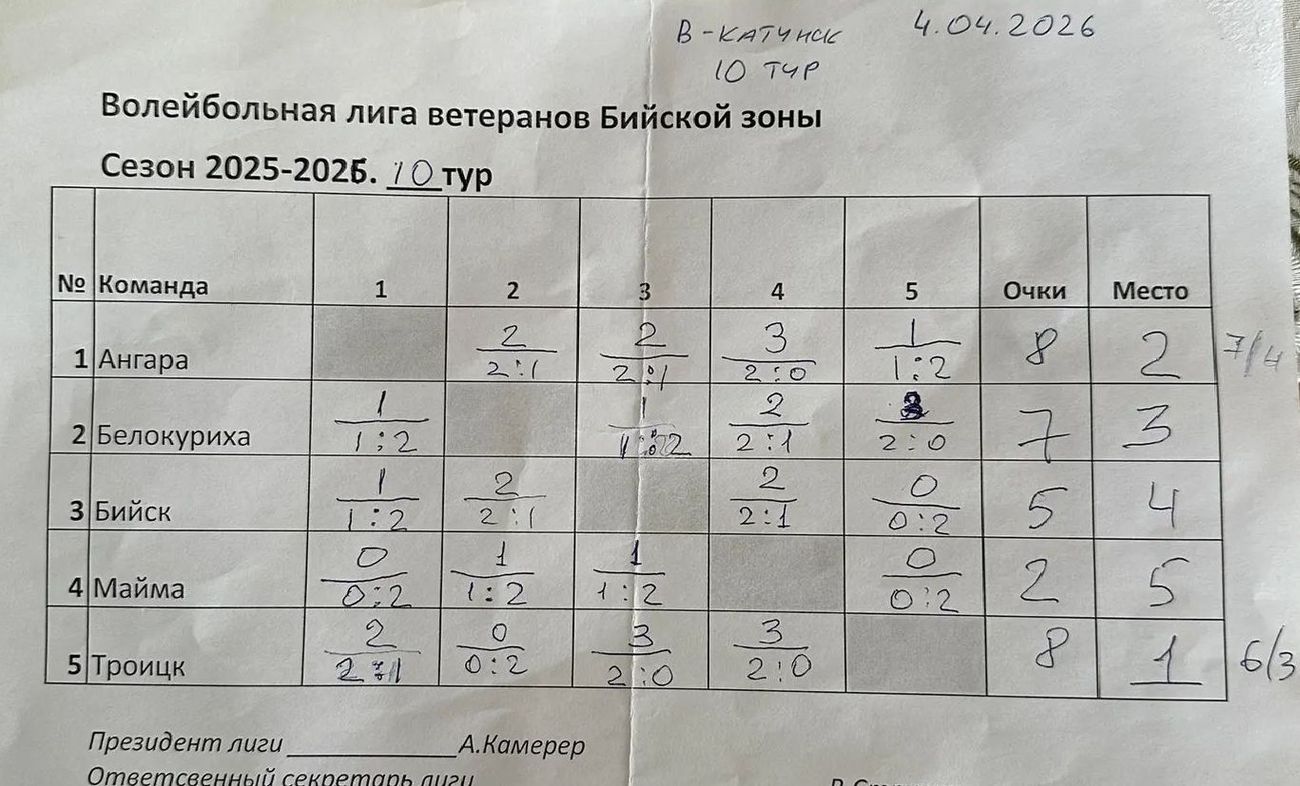 В-КАТУНСК 4.04.2026
10 ТУР
Волейбольная лига ветеранов Бийской зоны
Сезон 2025-2026. 10 тур
№ Команда 1 2 3 4 5 Очки Место
2 2 3 1
1 Ангара 2:1 2:1 2:0 1:2 8 2 7/4
1 1 2 3
2 Белокуриха 1:2 1:2 2:1 2:0 7 3
1 2 2 0
3 Бийск 1:2 2:1 2:1 0:2 5 4
0 1 1 0
4 Майма 0:2 1:2 1:2 0:2 2 5
2 0 3 3
5 Троицк 2:1 0:2 2:0 2:0 8 1 6/3
Президент лиги ____________ А.Камерер
Ответсвенный секретарь лиги